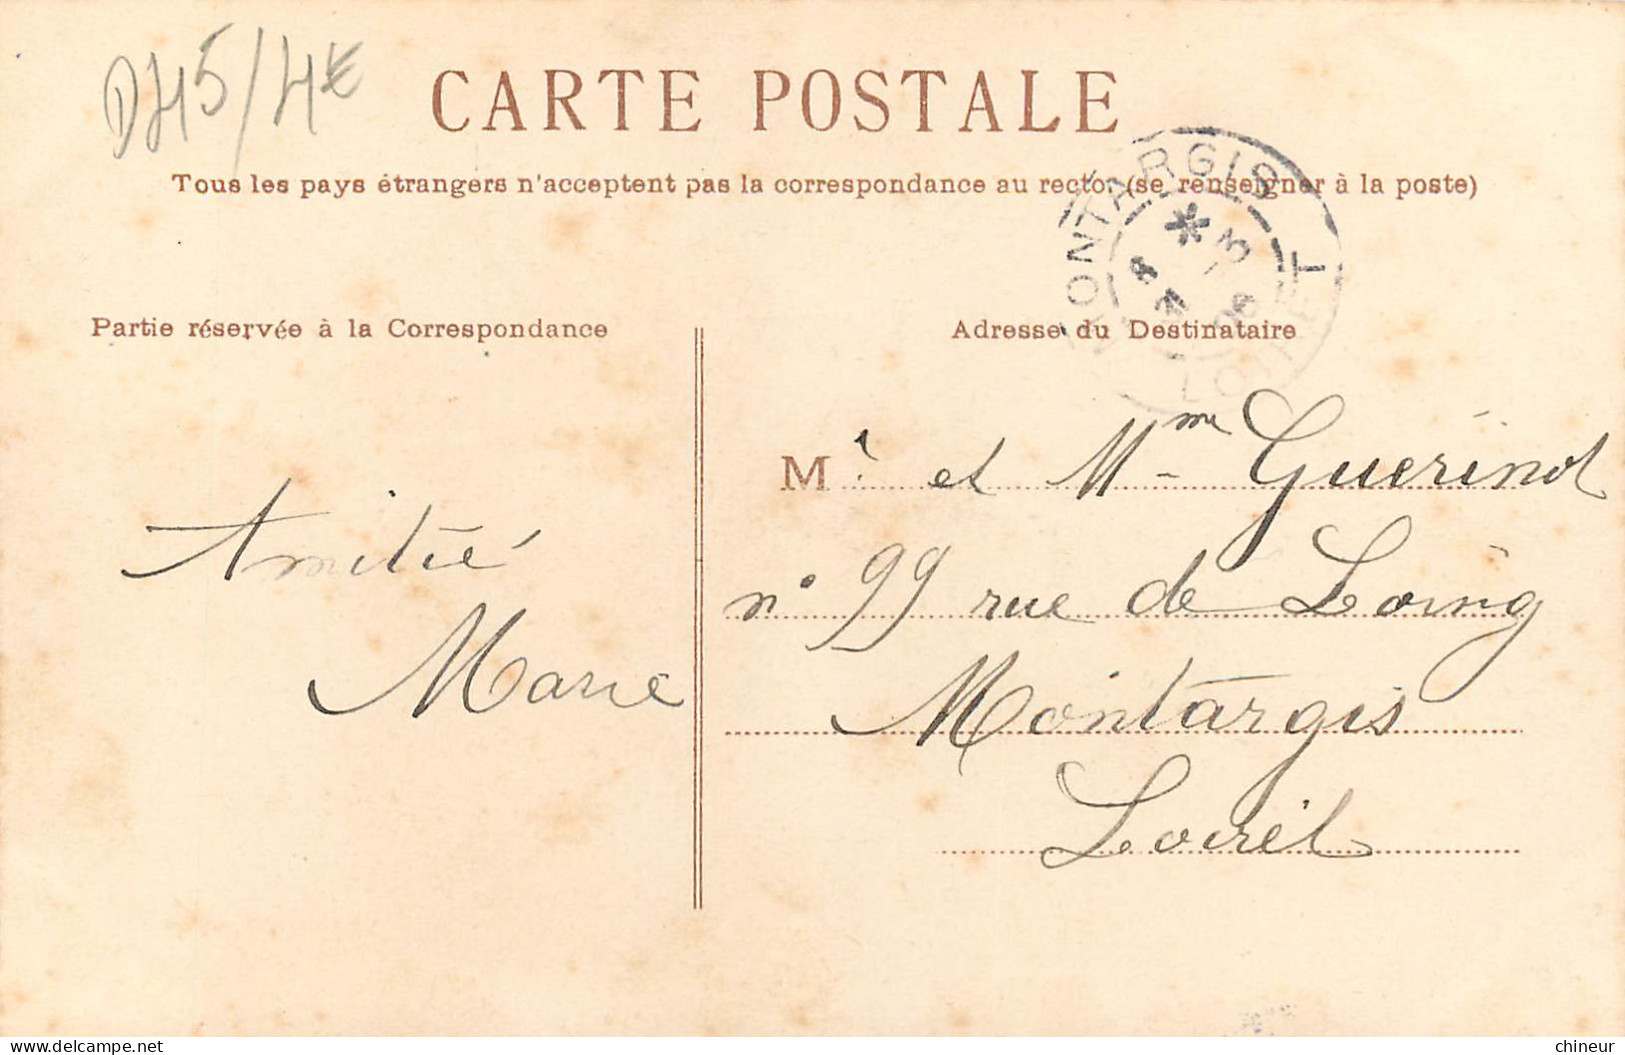 D45/4€
CARTE POSTALE
Tous les pays étrangers n'acceptent pas la correspondance au recto (se renseigner à la poste)
MONTARGIS
LOIRET
Partie réservée à la Correspondance
Adresse du Destinataire
Amitié
Marie
Mr et Mme Guerinot
n° 99 rue de Loing
Montargis
Loiret
delcampe.net
chineur